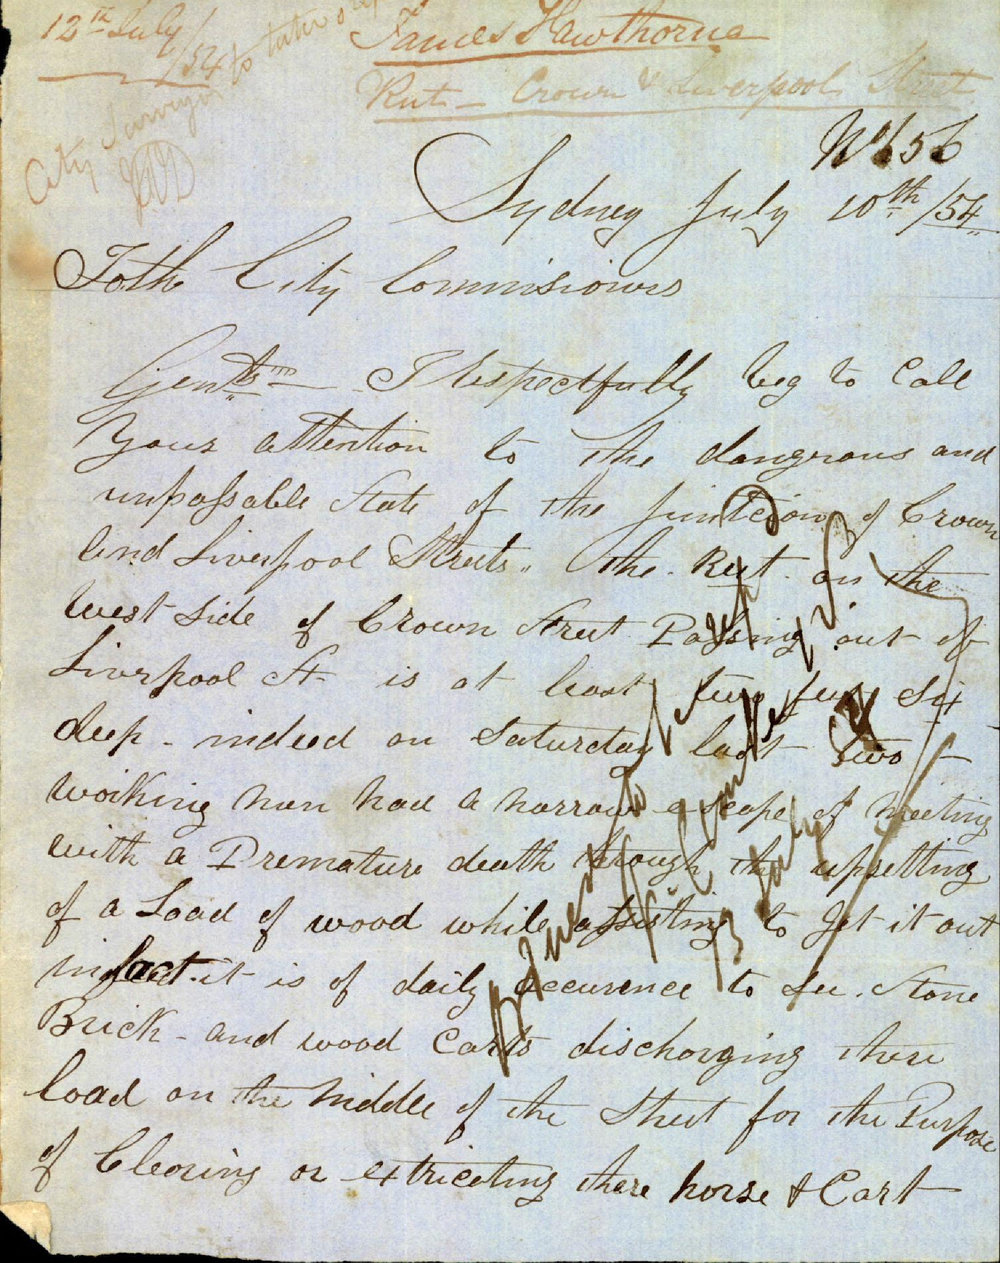 12th July /54
James Hawthorne
Rut - Crown & Liverpool Street
City Surveyor to
No 656
Sydney July 10th /54
Toth City Commisioners
Gentn I Respectfully beg to Call
Your attention to the dangrous and
unpassable State of the junction of Crown
And Liverpool Streets,, the Rut on the
West Side of Crown Street Passing out of
Liverpool St is at least two feet Six
deep - indeed on Saturday last two
working men had a narrow escape of meeting
with a Premature death through the upsetting
of a Load of wood while assisting to Get it out
infact it is of daily occurence to See Stone
Brick - and wood Carts discharging there
load on the Middle of the Street for the Purpose
of Clearing or extricating there horse & Cart
July